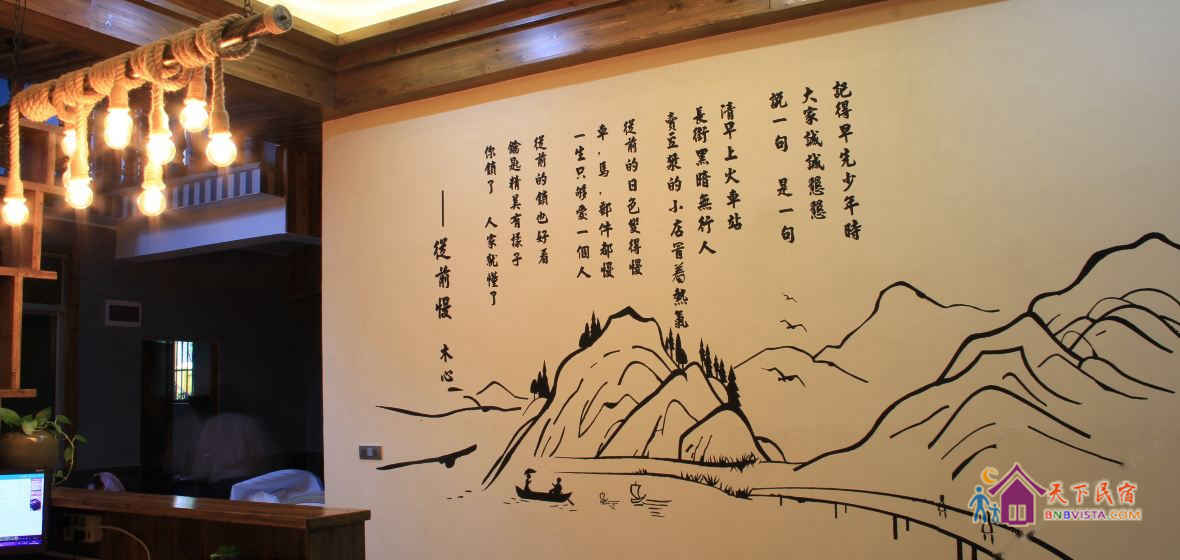 記得早先少年時
大家誠誠懇懇
說一句 是一句
清早上火車站
長街黑暗無行人
賣豆漿的小店冒着熱氣
從前的日色變得慢
車，馬，郵件都慢
一生只夠愛一個人
從前的鎖也好看
鑰匙精美有樣子
你鎖了 人家就懂了
——從前慢 木心
天下民宿
BNBVISTA.COM